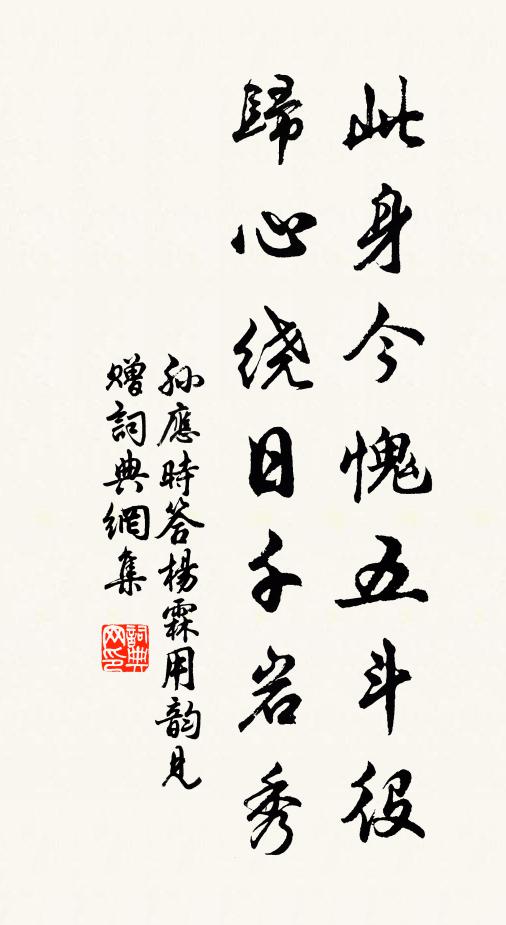 此身今愧五斗役
歸心绕日千岩秀
孙應時答楊霖用韵見
赠詞典網集
詞典网印